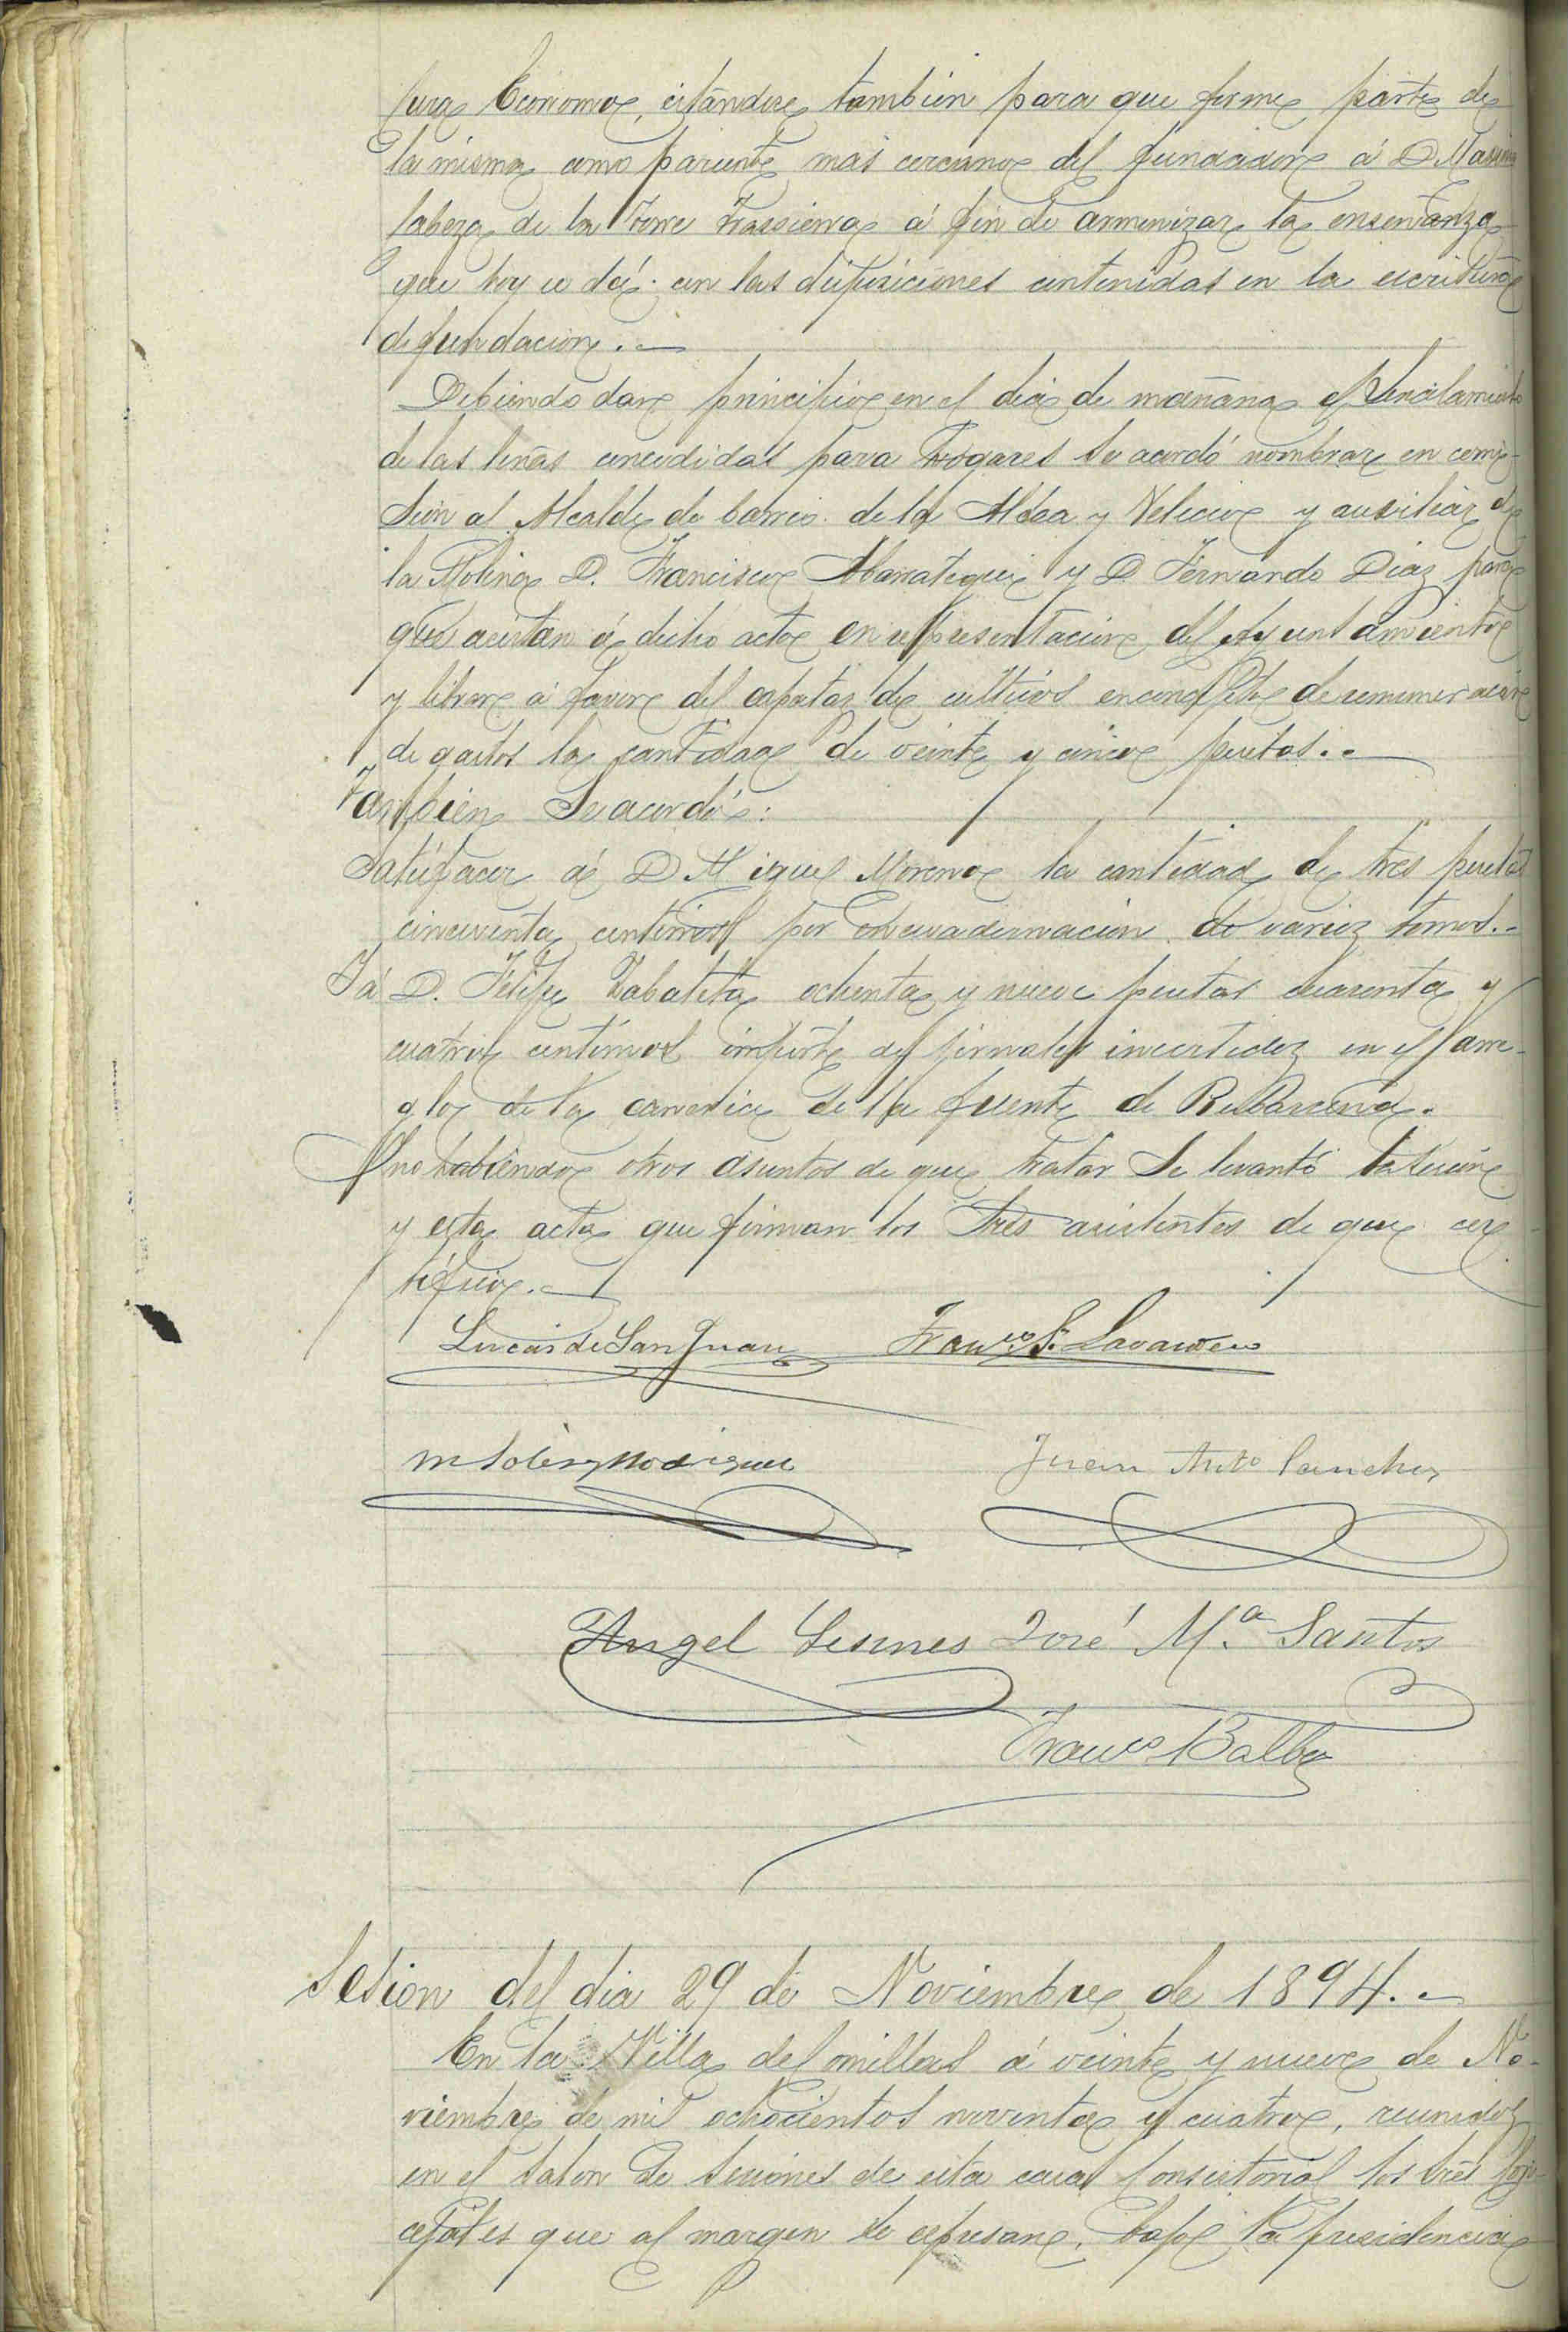 Cura Economo, citándose tambien para que forme parte de
la misma como pariente mas cercano del fundador á D.
Cabeza de la Torre Trassierra á fin de armonizar la enseñanza
que hoy se dá con las disposiciones contenidas en la escritura
de fundacion.
Debiendo dar principio en el dia de mañana el señalamiento
de las leñas concedidas para hogares se acordó nombrar en comi-
sion al Alcalde de barrio de la Aldea y Velecio y auxiliar de
la Molina D. Francisco Abarategui y D Fernando Diaz para
que asistan á dicho acto en representacion del Ayuntamiento
y librar á favor del capataz de cultivos en concepto de remuneracion
de gastos la cantidad de veinte y cinco pesetas.
Tambien Se acordó:
Satisfacer á D Miguel Moreno la cantidad de tres pesetas
cincuenta centimos por encuadernacion de varios tomos.
Y á D. Felipe Zabaleta ochenta y nueve pesetas cuarenta y
cuatro centimos importe de jornales invertidos en el arre-
glo de la cañeria de la fuente de Rubarcena.
Y no habiendo otros asuntos de que tratar Se levantó la sesion
y esta acta que firman los Sres asistentes de que cer
tifico.
Lucas de San Juan Franco S. Lavander
M Solis y Rodriguez Juan Anto Sanchez
Angel Lesmes José M.a Santos
Franco Balbas
Sesion del dia 29 de Noviembre de 1894.
En la Villa de Comillas á veinte y nueve de No-
viembre de mil ochocientos noventa y cuatro, reunidos
en el Salon de Sesiones de esta casa Consistorial los Sres Con-
cejales que al margen se espresan, bajo la presidencia